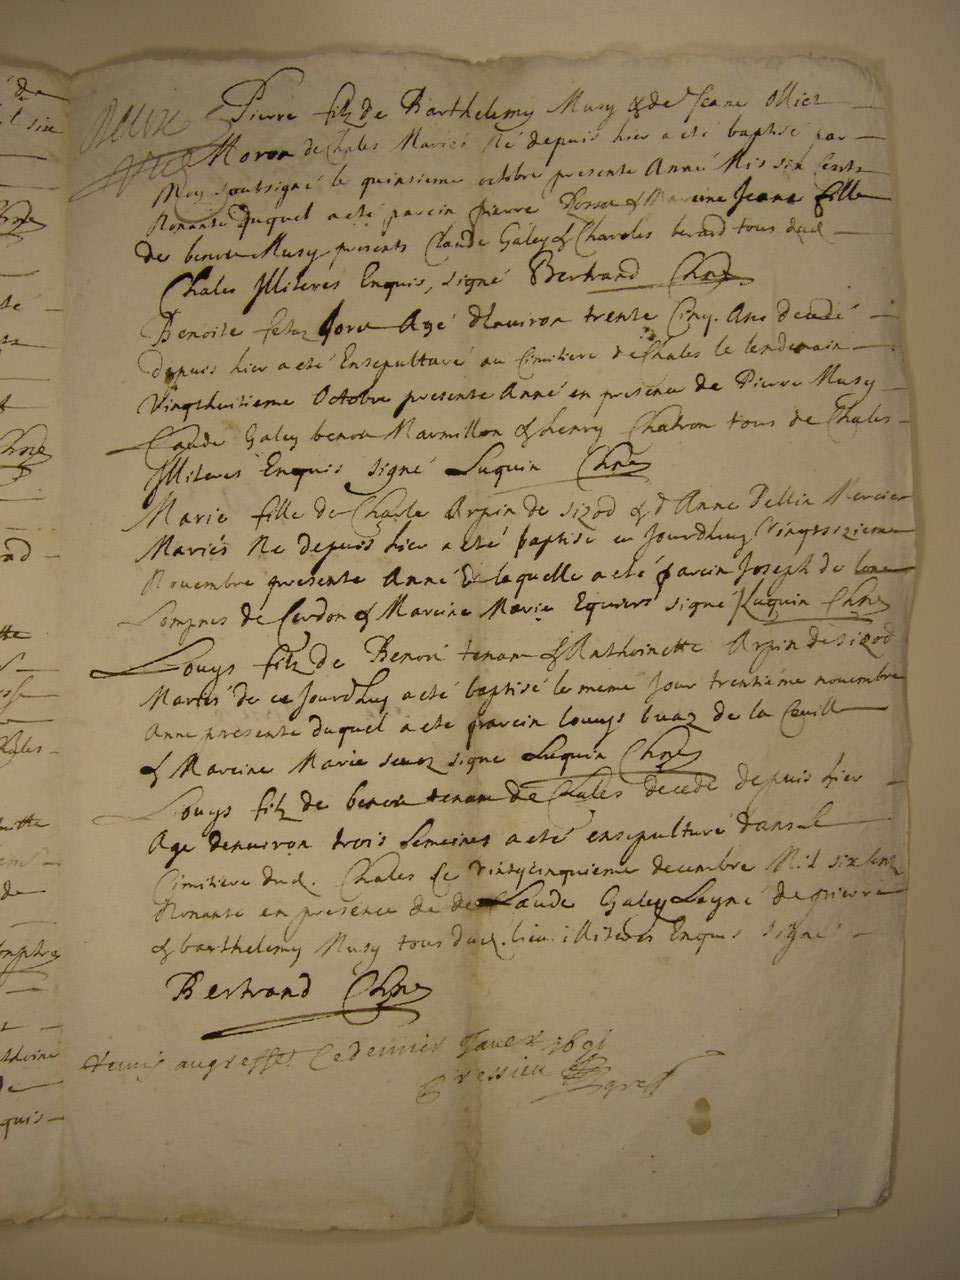 Pierre filz de Barthelemy Musy & de Jeane Ollier
Moron de Chales Mariés Né depuis hier a eté baptisé par
Moy soubsigné le quinsieme octobre presente Anné Mis six Cents
Nonante Duquel a eté parein pierre & Mareine Jeane fille
de benoit Musy presents Claude Galey & Charles berard tous dud
Chales Illiteres Enquis, signé Bertrand Chne
Benoite Agé d'Environ trente Cinq. Ans decedé
depuis hier a eté Ensepulturé au Cimitiere de Chales le lendemain
Vingthuitieme Octobre presente Anné en presence de Pierre Musy
Claude Galey benoit Marmillon & henry Chatron tous de Chales
Illiteres Enquis signé Luquin Chne
Marie fille de Charle Arpin de sizod & d Anne Pellin Mercier
Mariés Né depuis hier a eté baptisé ce Jourdhuy Vingtsizieme
Novembre presente Anné De laquelle a eté parein Joseph de
Lompnes de Cerdon & Mareine Marie signé Luquin Chne
Louys filz de Benoit tenam & Anthoinette Arpin de sizod
Mariés de ce Jourdhuy a eté baptisé le meme Jour trentiéme novembre
Anne presente duquel a eté parein louys buaz de la
& Mareine Marie signe Luquin Chne
Louys filz de benoit tenam de Chales decede depuis hier
Age denuiron trois semeines a eté ensepulturé dans le
Cimitiere dud. Chales Le vintgcinquieme decembre Mil six Cent
Nonante en presence de de Claude Galey Layné de pierre
& barthelemy Musy tous dud. lieu illiteres Enquis signé
Bertrand Chne
au greffe Ce dernier Janer 1691
Cressieu